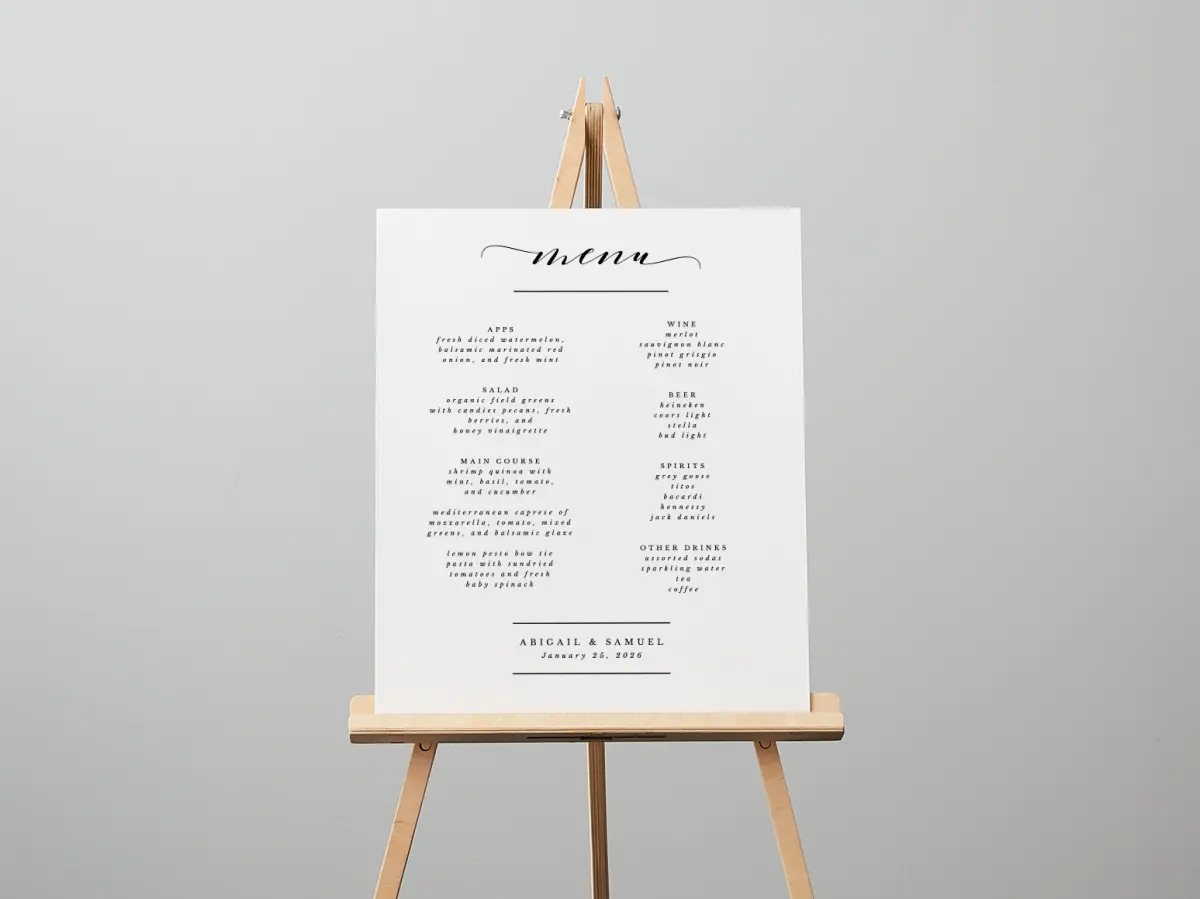 menu
APPS
fresh diced watermelon,
balsamic marinated red
onion, and fresh mint
SALAD
organic field greens
with candies pecans, fresh
berries, and
honey vinaigrette
MAIN COURSE
shrimp quinoa with
mint, basil, tomato,
and cucumber
mediterranean caprese of
mozzarella, tomato, mixed
greens, and balsamic glaze
lemon pesto bow tie
pasta with sundried
tomatoes and fresh
baby spinach
WINE
merlot
sauvignon blanc
pinot grisgio
pinot noir
BEER
heineken
coors light
stella
bud light
SPIRITS
grey goose
titos
bacardi
hennessy
jack daniels
OTHER DRINKS
assorted sodas
sparkling water
tea
coffee
ABIGAIL & SAMUEL
January 25, 2026